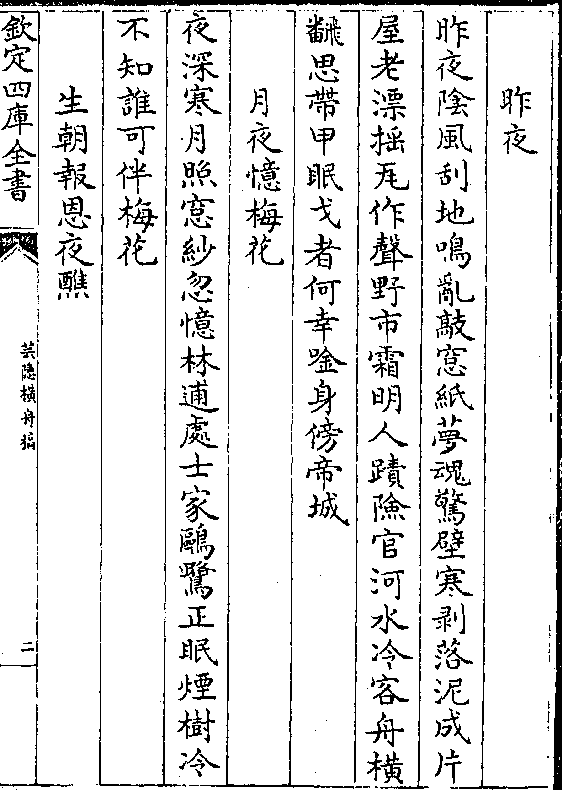 昨夜
昨夜陰風刮地鳴亂敲窓紙夢魂驚壁寒剥落泥成片
屋老漂揺瓦作聲野市霜明人蹟險官河水冷客舟橫
飜思帶甲眠戈者何幸唫身傍帝城
月夜憶梅花
夜深寒月照窓紗忽憶林逋處士家鷗鷺正眠煙樹冷
不知誰可伴梅花
生朝報恩夜醮
欽定四庫全書
芸隱橫舟稿
二